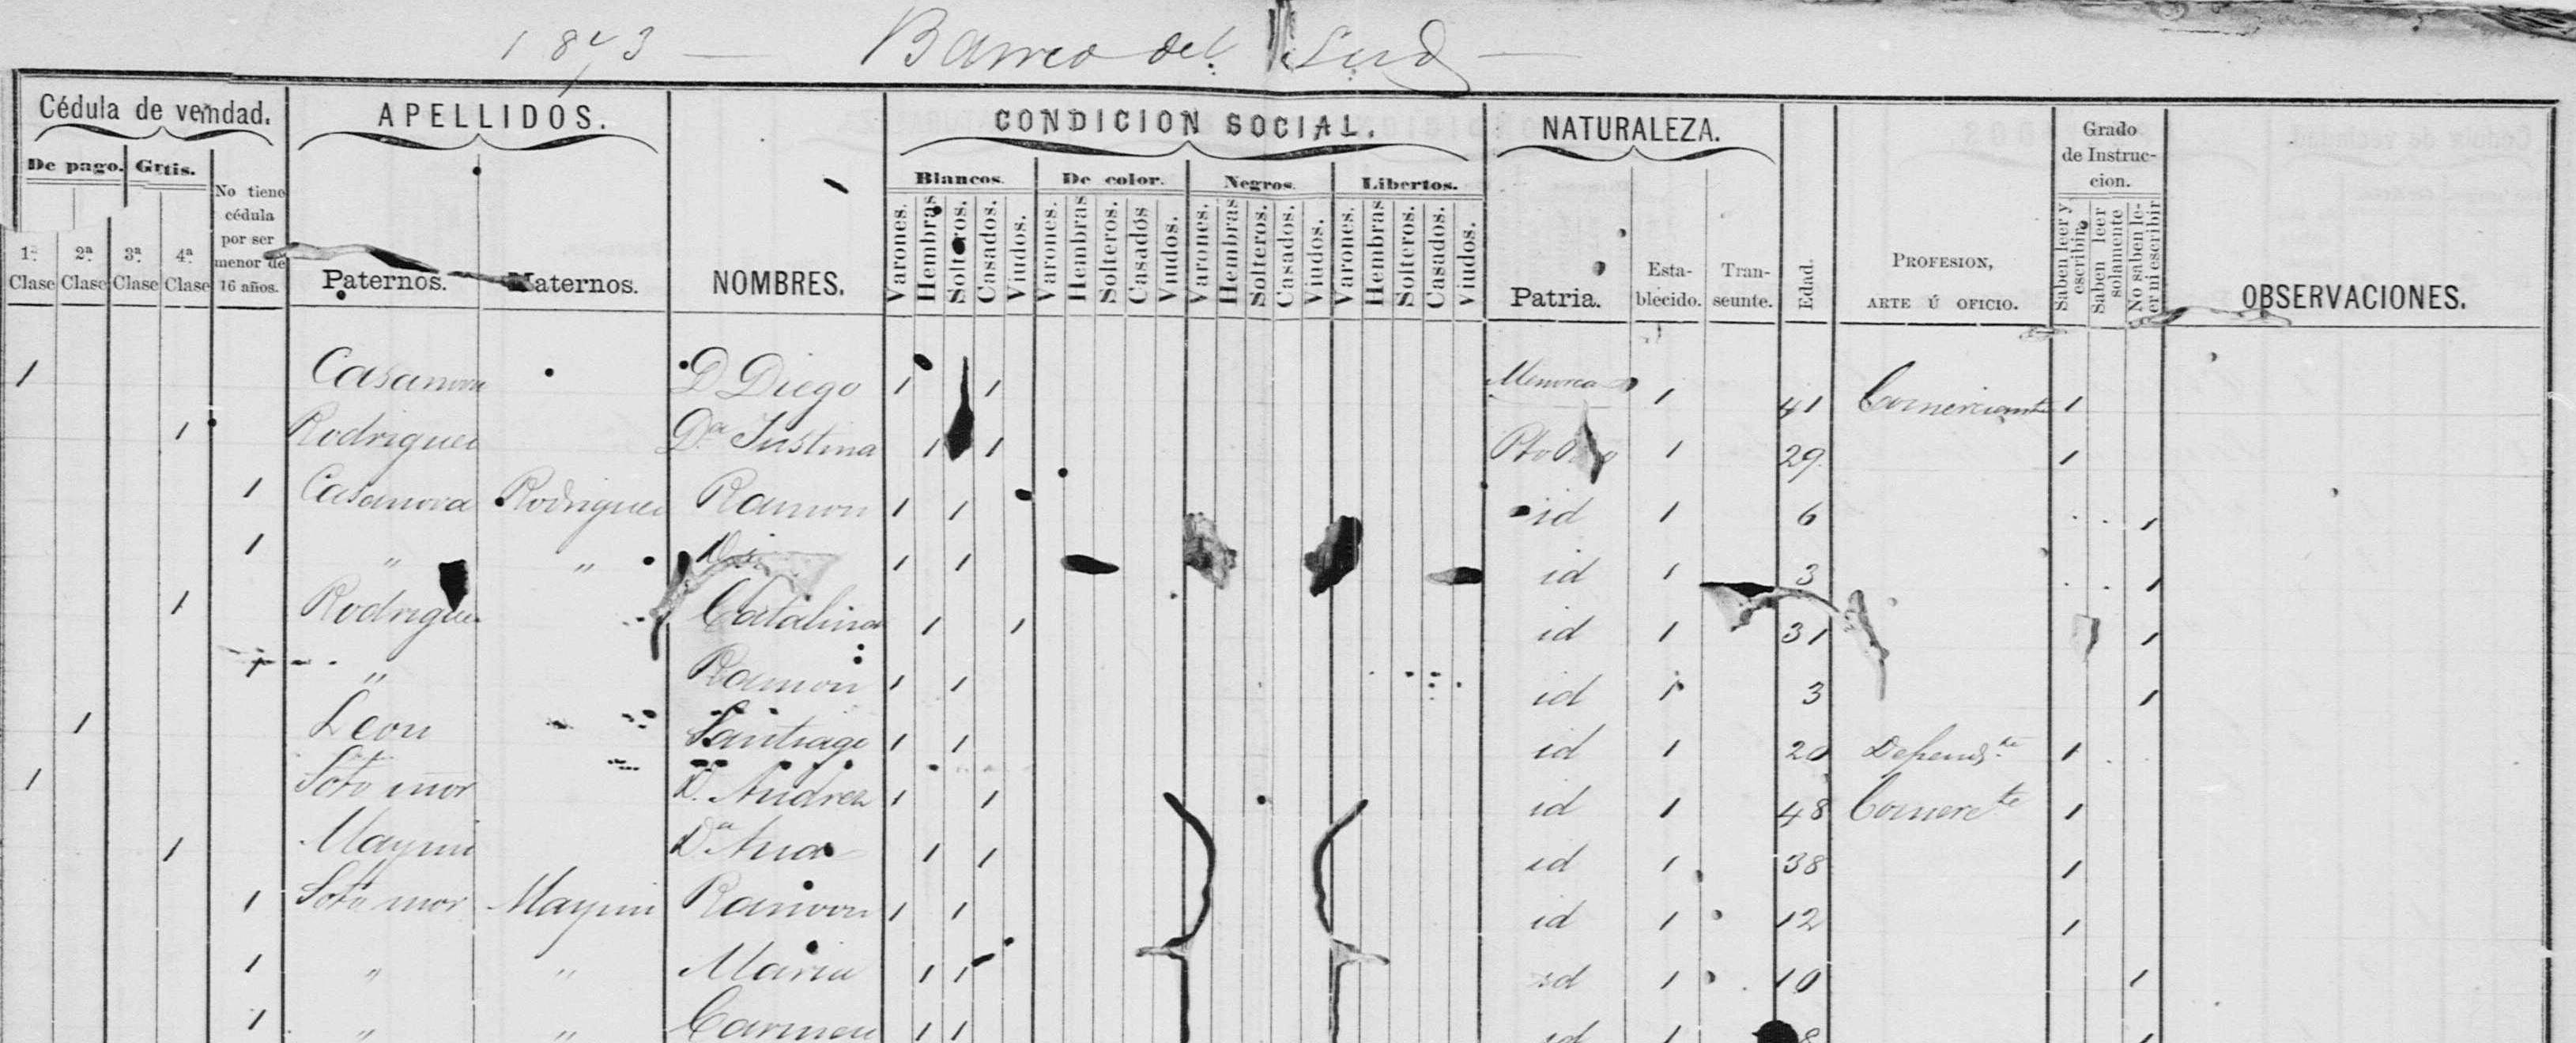 1873 — Barrio del Sud —
Cédula de vemdad. APELLIDOS. NOMBRES. CONDICION SOCIAL. NATURALEZA. Edad. PROFESION, ARTE Ú OFICIO. Grado de Instruc- cion. OBSERVACIONES.
De pago. Grtis. No tiene cédula por ser menor de 16 años. Paternos. Maternos. Blancos. De color. Negros. Libertos. Patria. Esta- blecido. Tran- seunte. Saben leer y escribir. Saben leer solamente No saben le- er ni escribir
1ª Clase 2ª Clase 3ª Clase 4ª Clase Varones. Hembras Solteros. Casados. Viudos. Varones. Hembras Solteros. Casados Viudos. Varones. Hembras Solteros. Casados. Viudos. Varones. Hembras Solteros. Casados. Viudos.
1 Casanova D Diego 1 1 Menorca 1 41 Comerciante 1
1 Rodriguez Dª Justina 1 1 Pto 1 29 1
1 Casanova Rodriguez Ramon 1 1 id 1 6 1
1 " " 1 1 id 1 3 1
1 Rodriguez Catalina 1 1 id 1 31 1
1 " Ramon 1 1 id 1 3 1
1 Leon Santiago 1 1 id 1 20 Dependte 1
1 Soto mor D. Andrez 1 1 id 1 48 Comercte 1
1 Maymi Dª Ana 1 1 id 1 38 1
1 Soto mor Maymi Ramon 1 1 id 1 12 1
1 " " Maria 1 1 id 1 10 1
1 " " Carmen 1 1 id 1 8 1